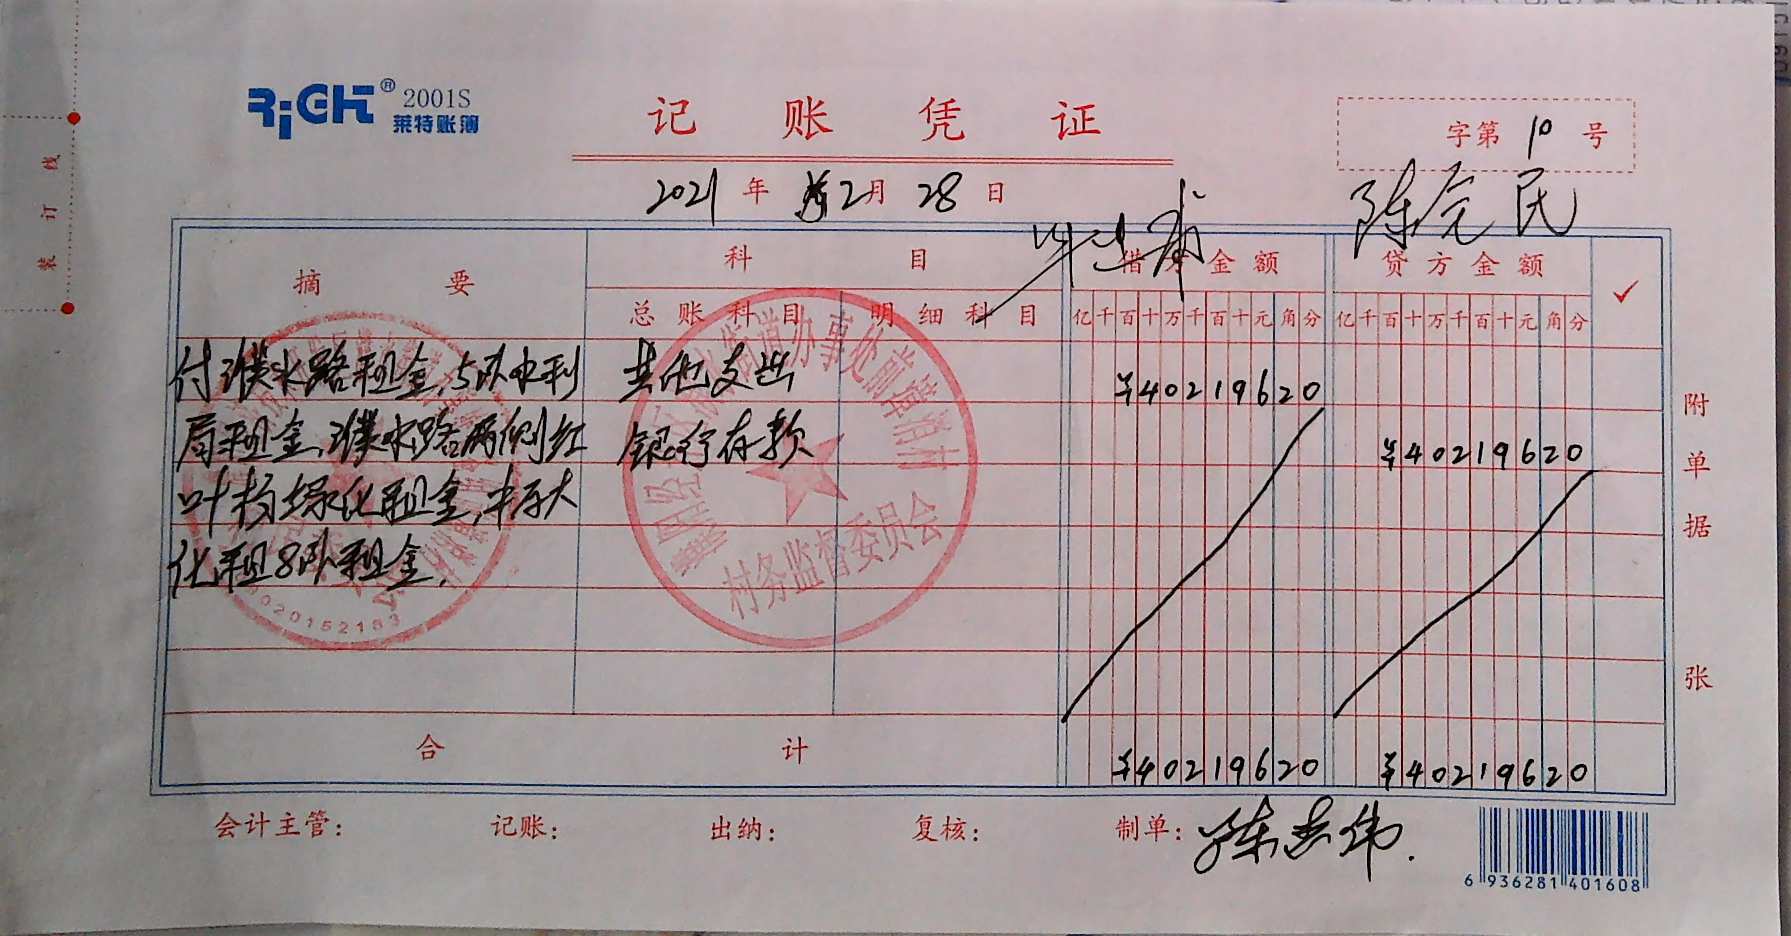 RiCH® 2001S
莱特账簿
记账凭证
字第 10 号
2021 年 2月 28 日
陈元民
摘要 科目 借方金额 贷方金额 ✓
总账科目 明细科目 亿千百十万千百十元角分 亿千百十万千百十元角分
付濮水路租金,5队水利 其他支出 ¥40219620
局租金,濮水路两侧红 银行存款 ¥40219620
叶杨绿化租金,中原大
化租8队租金.
街道办事处前漳消村
村务监督委员会
020152183
合计 ¥40219620 ¥40219620
附单据 张
会计主管: 记账: 出纳: 复核: 制单: 陈志伟.
6 936281 401608
装订线